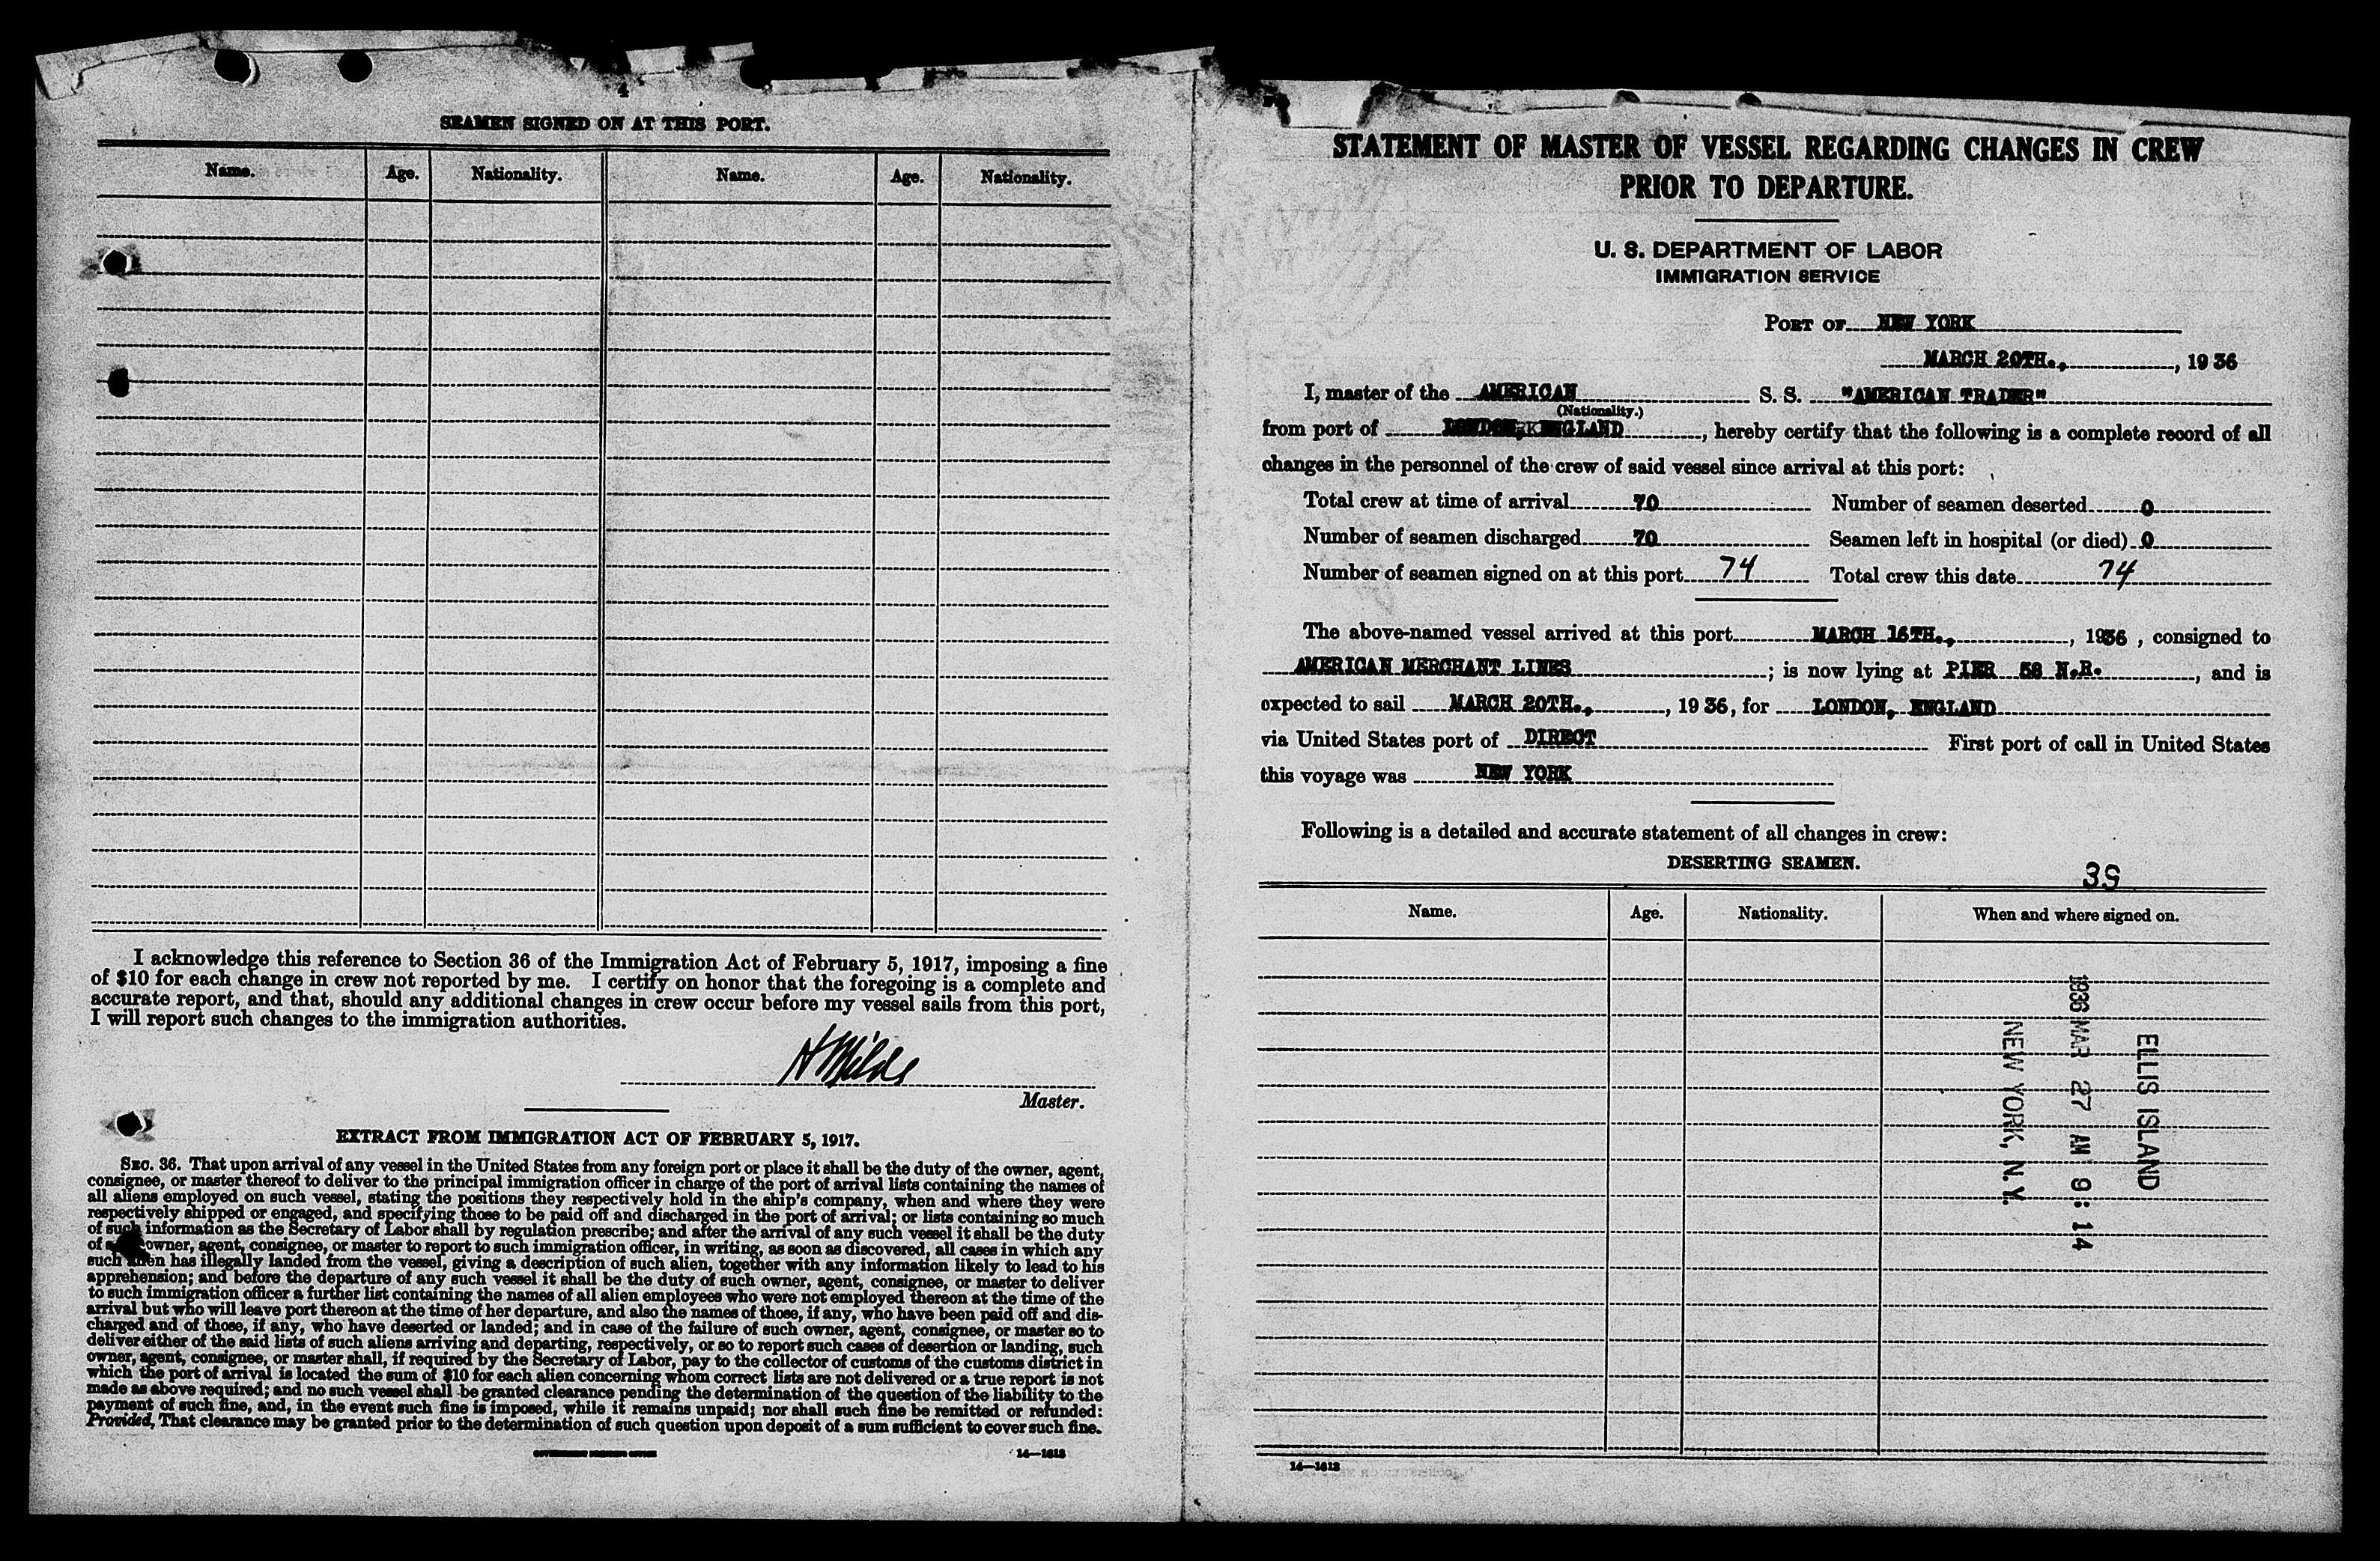 4
SEAMEN SIGNED ON AT THIS PORT.
Name. Age. Nationality. Name. Age. Nationality.
I acknowledge this reference to Section 36 of the Immigration Act of February 5, 1917, imposing a fine
of $10 for each change in crew not reported by me. I certify on honor that the foregoing is a complete and
accurate report, and that, should any additional changes in crew occur before my vessel sails from this port,
I will report such changes to the immigration authorities.
Master.
EXTRACT FROM IMMIGRATION ACT OF FEBRUARY 5, 1917.
SEC. 36. That upon arrival of any vessel in the United States from any foreign port or place it shall be the duty of the owner, agent,
consignee, or master thereof to deliver to the principal immigration officer in charge of the port of arrival lists containing the names of
all aliens employed on such vessel, stating the positions they respectively hold in the ship's company, when and where they were
respectively shipped or engaged, and specifying those to be paid off and discharged in the port of arrival; or lists containing so much
of such information as the Secretary of Labor shall by regulation prescribe; and after the arrival of any such vessel it shall be the duty
of owner, agent, consignee, or master to report to such immigration officer, in writing, as soon as discovered, all cases in which any
such alien has illegally landed from the vessel, giving a description of such alien, together with any information likely to lead to his
apprehension; and before the departure of any such vessel it shall be the duty of such owner, agent, consignee, or master to deliver
to such immigration officer a further list containing the names of all alien employees who were not employed thereon at the time of the
arrival but who will leave port thereon at the time of her departure, and also the names of those, if any, who have been paid off and dis-
charged and of those, if any, who have deserted or landed; and in case of the failure of such owner, agent, consignee, or master so to
deliver either of the said lists of such aliens arriving and departing, respectively, or so to report such cases of desertion or landing, such
owner, agent, consignee, or master shall, if required by the Secretary of Labor, pay to the collector of customs of the customs district in
which the port of arrival is located the sum of $10 for each alien concerning whom correct lists are not delivered or a true report is not
made as above required; and no such vessel shall be granted clearance pending the determination of the question of the liability to the
payment of such fine, and, in the event such fine is imposed, while it remains unpaid; nor shall such fine be remitted or refunded:
Provided, That clearance may be granted prior to the determination of such question upon deposit of a sum sufficient to cover such fine.
GOVERNMENT PRINTING OFFICE 14—1613
STATEMENT OF MASTER OF VESSEL REGARDING CHANGES IN CREW
PRIOR TO DEPARTURE.
U. S. DEPARTMENT OF LABOR
IMMIGRATION SERVICE
PORT OF NEW YORK
MARCH 20TH., , 1936
I, master of the AMERICAN S. S. "AMERICAN TRADER"
(Nationality.)
from port of LONDON, ENGLAND , hereby certify that the following is a complete record of all
changes in the personnel of the crew of said vessel since arrival at this port:
Total crew at time of arrival 70 Number of seamen deserted 0
Number of seamen discharged 70 Seamen left in hospital (or died) 0
Number of seamen signed on at this port 74 Total crew this date 74
The above-named vessel arrived at this port MARCH 16TH., , 1936 , consigned to
AMERICAN MERCHANT LINES ; is now lying at PIER 58 N.R. , and is
expected to sail MARCH 20TH., , 1936, for LONDON, ENGLAND
via United States port of DIRECT First port of call in United States
this voyage was NEW YORK
Following is a detailed and accurate statement of all changes in crew:
DESERTING SEAMEN.
39
Name. Age. Nationality. When and where signed on.
ELLIS ISLAND
1936 MAR 27 AM 9: 14
NEW YORK, N.Y.
14—1613